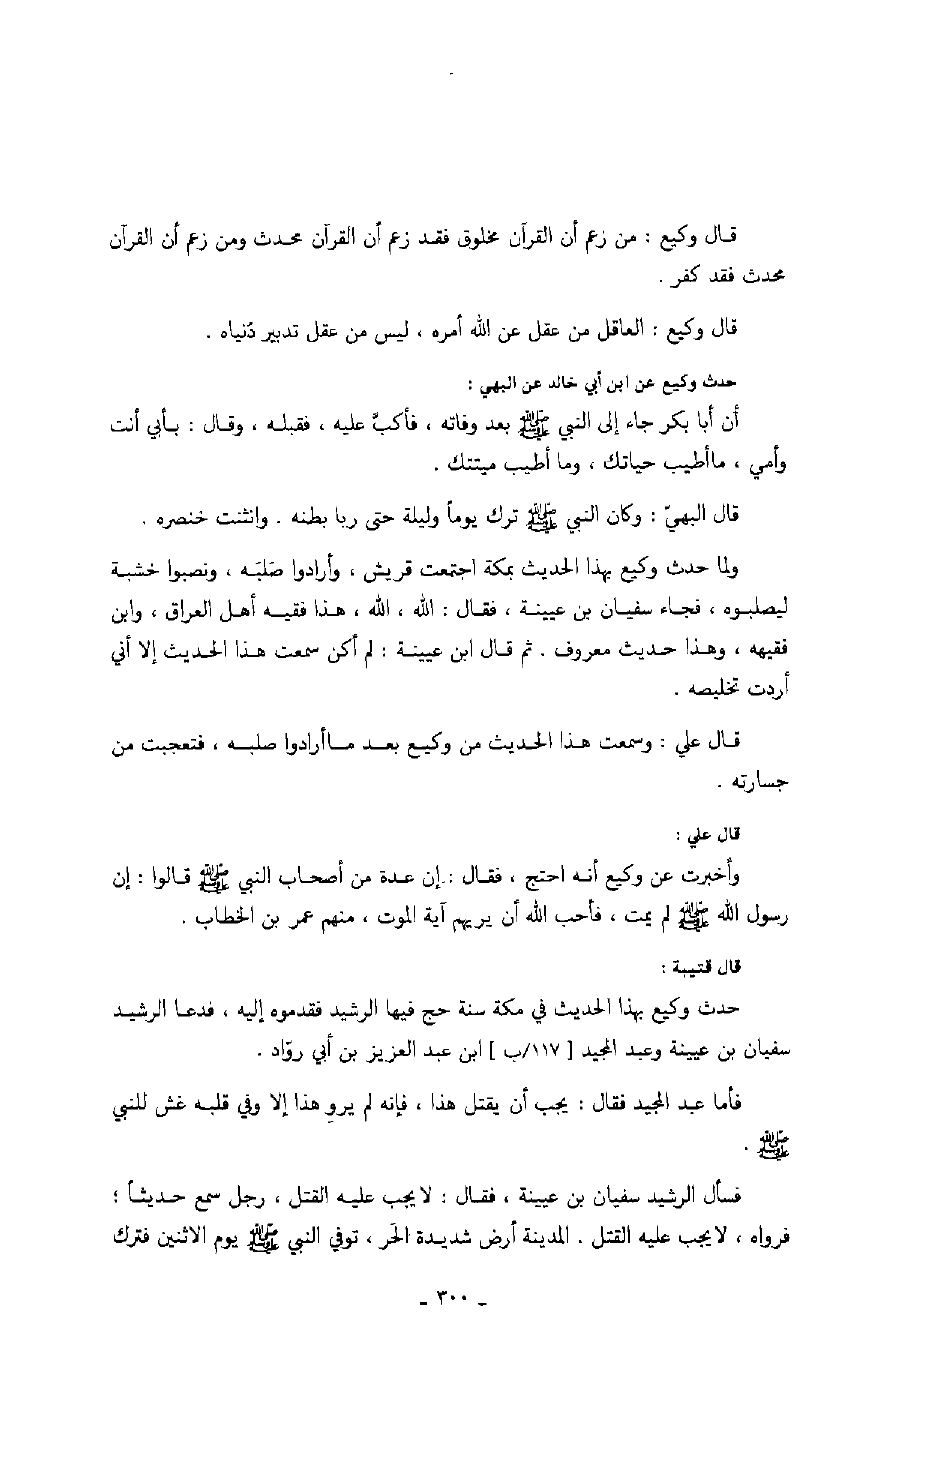 قال وكيع : من زعم أن القرآن مخلوق فقد زعم أن القرآن محدث ومن زعم أن القرآن
محدث فقد كفر .
قال وكيع : العاقل من عقل عن الله أمره ، ليس من عقل تدبير دُنياه .
حدث وكيع عن ابن أبي خالد عن البهي :
أن أبا بكر جاء إلى النبي ﷺ بعد وفاته ، فأكبَّ عليه ، فقبله ، وقال : بأبي أنت
وأمي ، ماأطيب حياتك ، وما أطيب ميتتك .
قال البهيّ : وكان النبي ﷺ ترك يوماً وليلة حتى ربا بطنه . وانثنت خنصره .
ولما حدث وكيع بهذا الحديث بمكة اجتمعت قريش ، وأرادوا صَلبَه ، ونصبوا خشبة
ليصلبوه ، فجاء سفيان بن عيينة ، فقال : الله ، الله ، هذا فقيه أهل العراق ، وابن
فقيهه ، وهذا حديث معروف . ثم قال ابن عيينة : لم أكن سمعت هذا الحديث إلا أني
أردت تخليصه .
قال علي : وسمعت هذا الحديث من وكيع بعد ماأرادوا صلبه ، فتعجبت من
جسارته .
قال علي :
وأخبرت عن وكيع أنه احتج ، فقال : إن عدة من أصحاب النبي ﷺ قالوا : إن
رسول الله ﷺ لم يمت ، فأحب الله أن يريهم آية الموت ، منهم عمر بن الخطاب .
قال قتيبة :
حدث وكيع بهذا الحديث في مكة سنة حج فيها الرشيد فقدموه إليه ، فدعا الرشيد
سفيان بن عيينة وعبد المجيد [ ١١٧/ب ] ابن عبد العزيز بن أبي روّاد .
فأما عبد المجيد فقال : يجب أن يقتل هذا ، فإنه لم يروِ هذا إلا وفي قلبه غش للنبي
ﷺ .
فسأل الرشيد سفيان بن عيينة ، فقال : لا يجب عليه القتل ، رجل سمع حديثاً ؛
فرواه ، لا يجب عليه القتل . المدينة أرض شديدة الحَر ، توفي النبي ﷺ يوم الاثنين فترك
ـ ٣٠٠ ـ